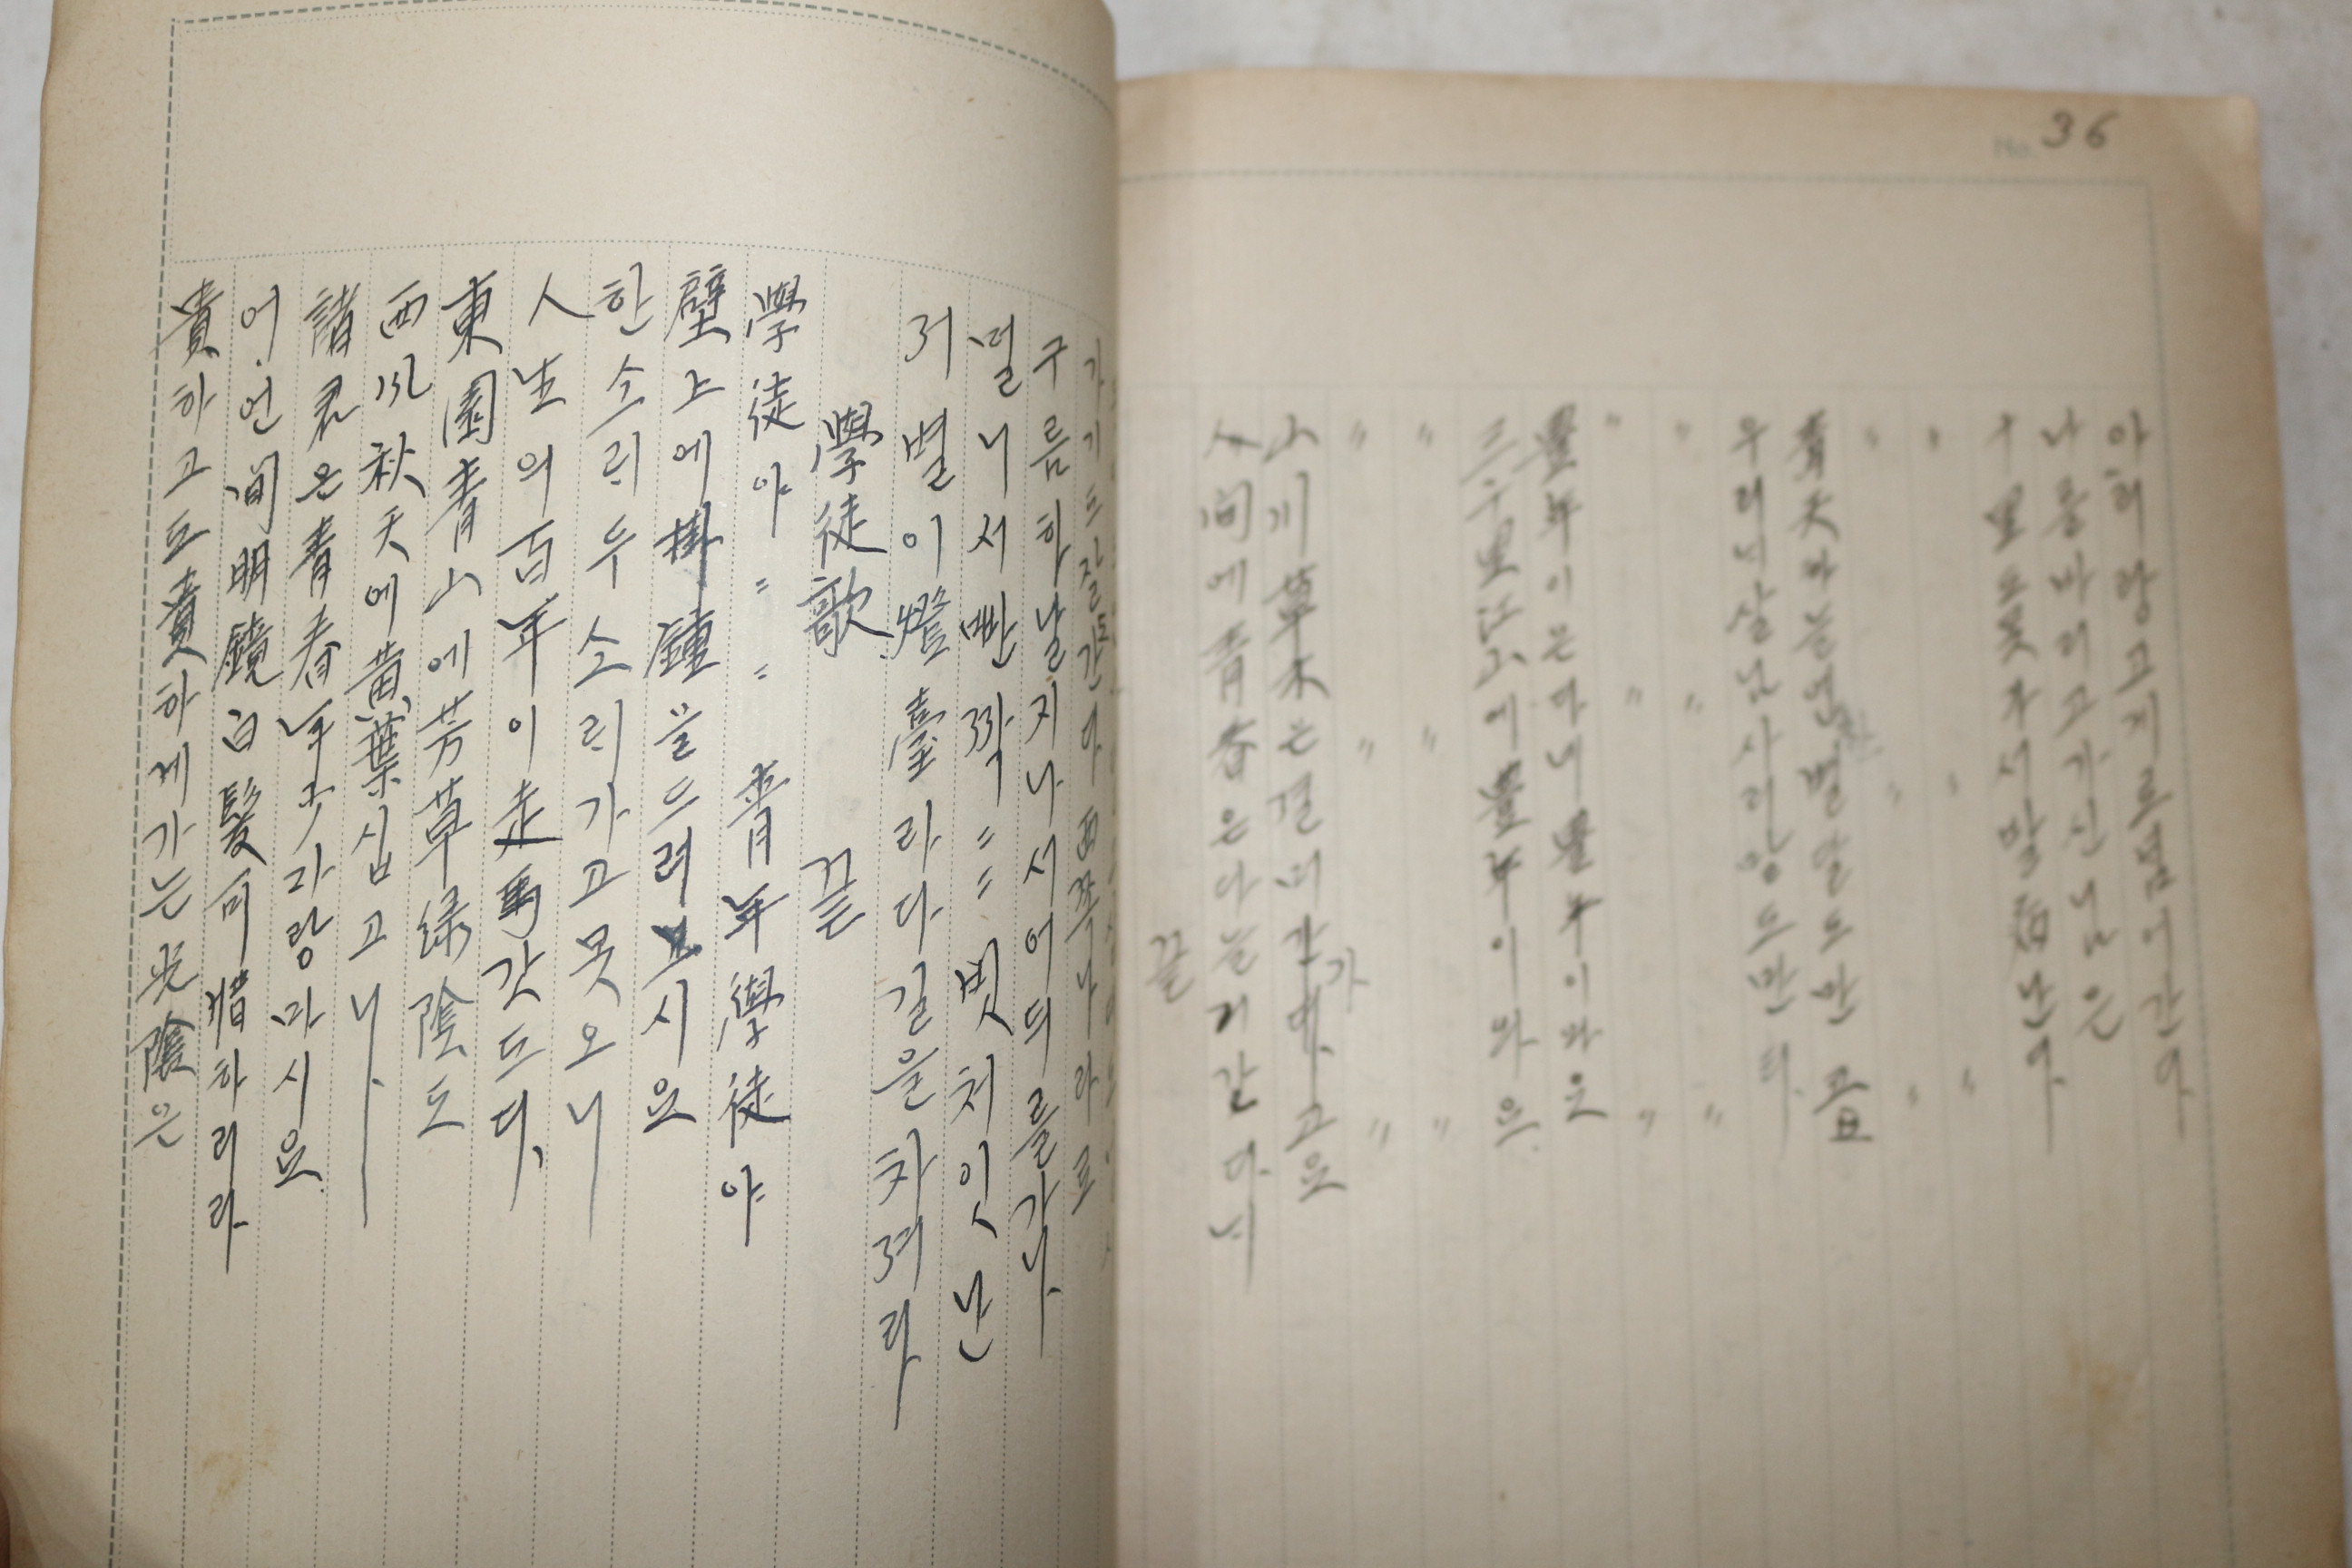 36
아리랑고게르넘어간다
나를바리고가신님은
十里도못가서발病난다
〃 〃 〃 〃 〃 〃
靑天하늘엔별달도만코요
우리내살님사리말도만타
〃 〃 〃 〃 〃 〃
豊年이온다네豊年이와요
三千里江山에豊年이와요
〃 〃 〃 〃 〃 〃
山川草木은젊어간가고요
人間에靑春은다늘거간다네
끝
구름하날지나서어듸를가나
멀니서빤짝〃〃빗처잇난
저별이燈臺라다길을차저라
끝
學徒歌
學徒야〃〃靑年學徒야
壁上에掛鍾을드려보시요
한소리두소리가고못오니
人生의百年이走馬갓드다
東園靑山에芳草綠陰도
西風秋天에黃葉십고나
諸君은靑春少年자랑마시요
어언間明鏡白髮可惜하리라
貴하고도貴하게가는光陰은